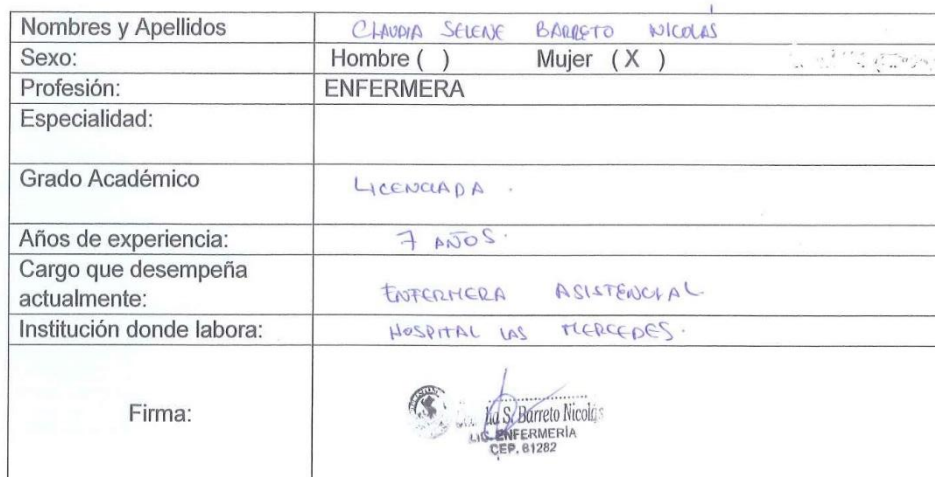 Nombres y Apellidos CLAUDIA SELENE BARRETO NICOLAS
Sexo: Hombre ( ) Mujer ( X )
Profesión: ENFERMERA
Especialidad:
Grado Académico LICENCIADA .
Años de experiencia: 7 AÑOS.
Cargo que desempeña
actualmente: ENFERMERA ASISTENCIAL
Institución donde labora: HOSPITAL LAS MERCEDES.
Firma:
S. Barreto Nicolás
LIC. ENFERMERÍA
CEP. 81282